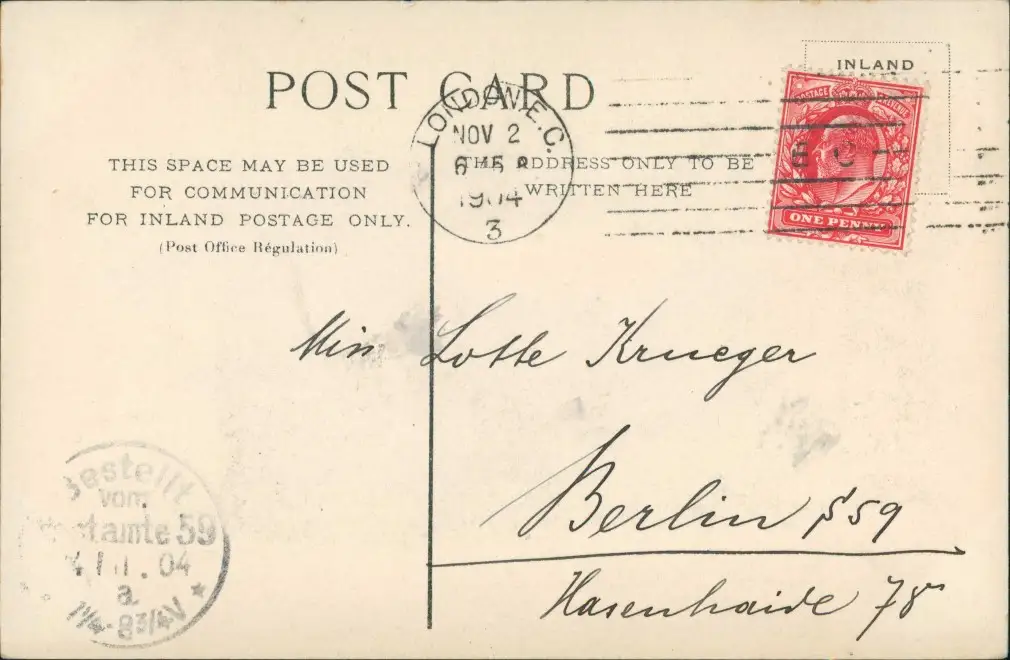 POST CARD
INLAND
LONDON. E.C.
NOV 2
1904
3
THIS SPACE MAY BE USED
FOR COMMUNICATION
FOR INLAND POSTAGE ONLY.
(Post Office Régulation)
THE ADDRESS ONLY TO BE
WRITTEN HERE
POSTAGE REVENUE
ONE PENNY
Miss Lotte Krueger
Berlin S 59
Hasenhaide 78
Bestellt
vom
Postamte 59
04
a
8 3/4 V